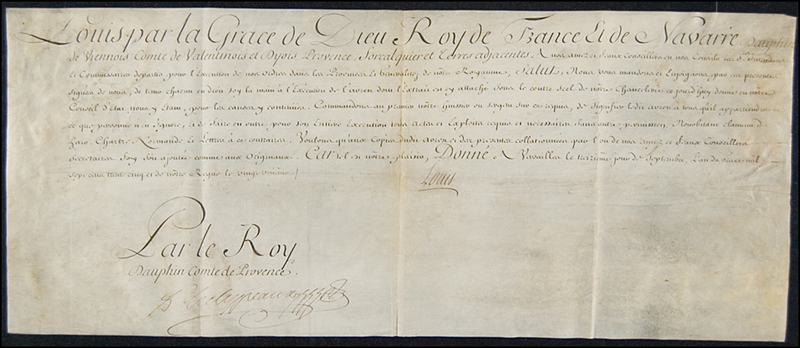 Louis par la Grace de Dieu Roy de France et de Navarre Dauphin
de Viennois Comte de Valentinois et Dyois Provence Forcalquier et terres adjacentes A nos amez et feaux Conseillers en nos Conseils
et Commissaires departis pour l'Execution de nos ordres dans les Provinces et generalités de nôtre Royaume, Salut, Nous vous mandons et Enjoignons par ces presentes
signées de nous, de tenir chacun en droit soy la main à l'execution de l'arrest dont l'Extrait est cy attaché sous le contre scel de nôtre Chancellerie ce jourd'huy donné en nôtre
Conseil d'état, nous y étant, pour les causes y contenües. Commandons au premier nôtre huissier ou sergent sur ce requis, de signifier led. arrest à tous qu'il appartiendra
ce que personne n'en ignore, et de faire en outre pour son Entiere Execution tous actes et Exploits requis et necessaires sans autre permission, Nonobstant clameur de
Haro, Chartre Normande et Lettres à ce contraires. Voulons qu'aux Copies dudit arrest et des presentes collationnées par l'un de nos amez et feaux Conseillers
Secretaires foy soit ajoutée comme aux Originaux. Car tel est nôtre plaisir, Donné A Versailles le treizieme jour de Septembre, l'an de grace mil
sept cens trente cinq et de nôtre Regne le vingt unieme.
Louis
Par le Roy
Dauphin Comte de Provence.
Phelypeaux